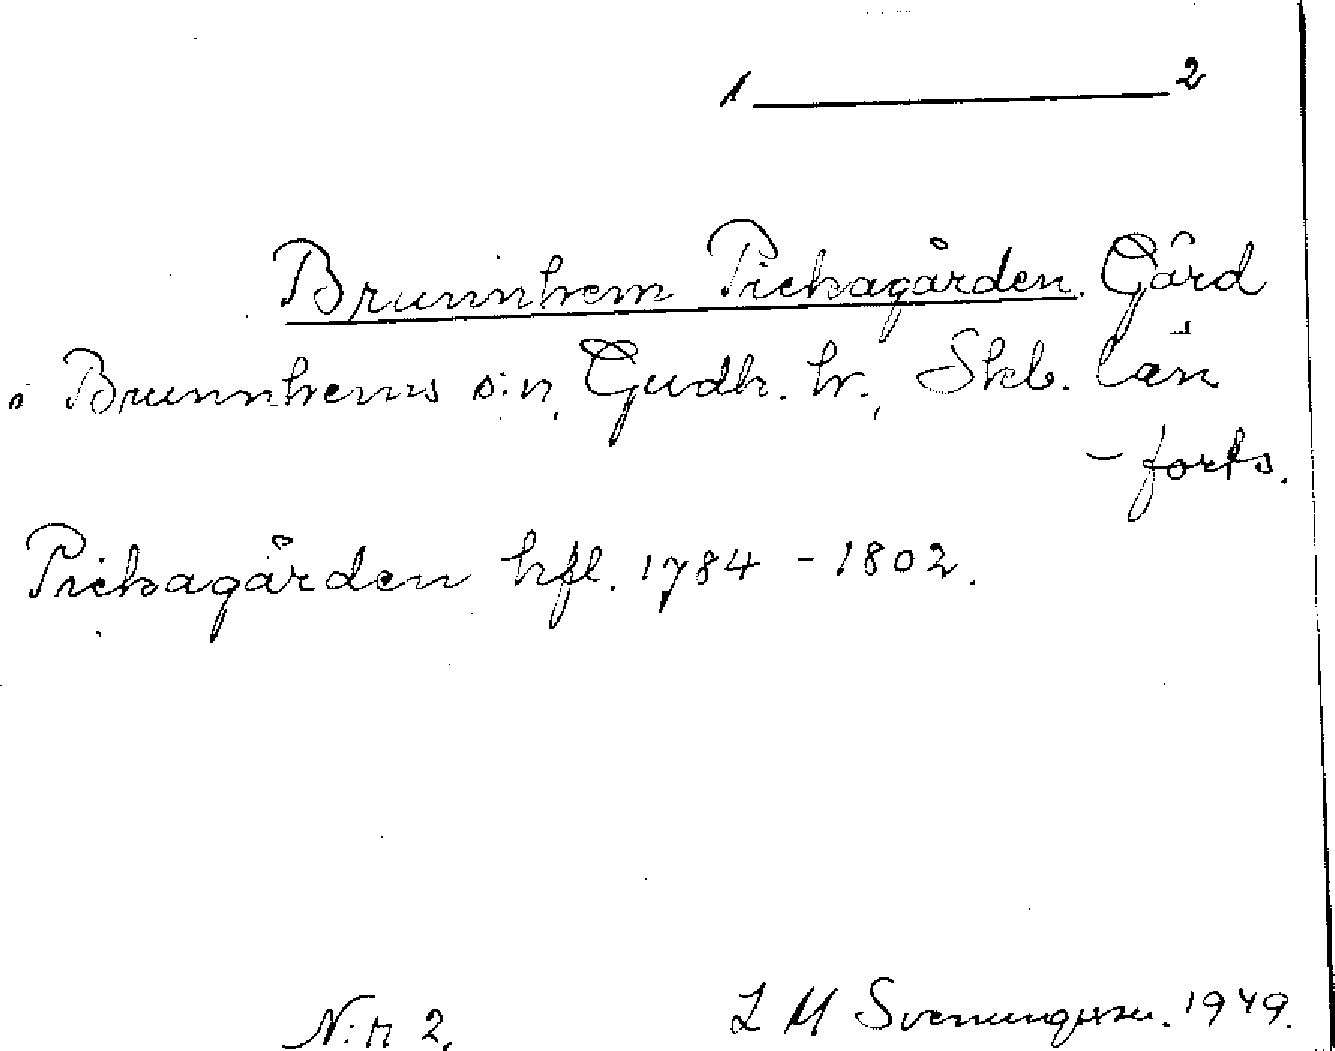 1 ——— 2
Brunnhem Pickagården. Gård
i Brunnhems s:n, Gudh. hr., Skb. län
– forts.
Pickagården hfl. 1784 – 1802.
N:r 2. L M Svenungsson. 1949.